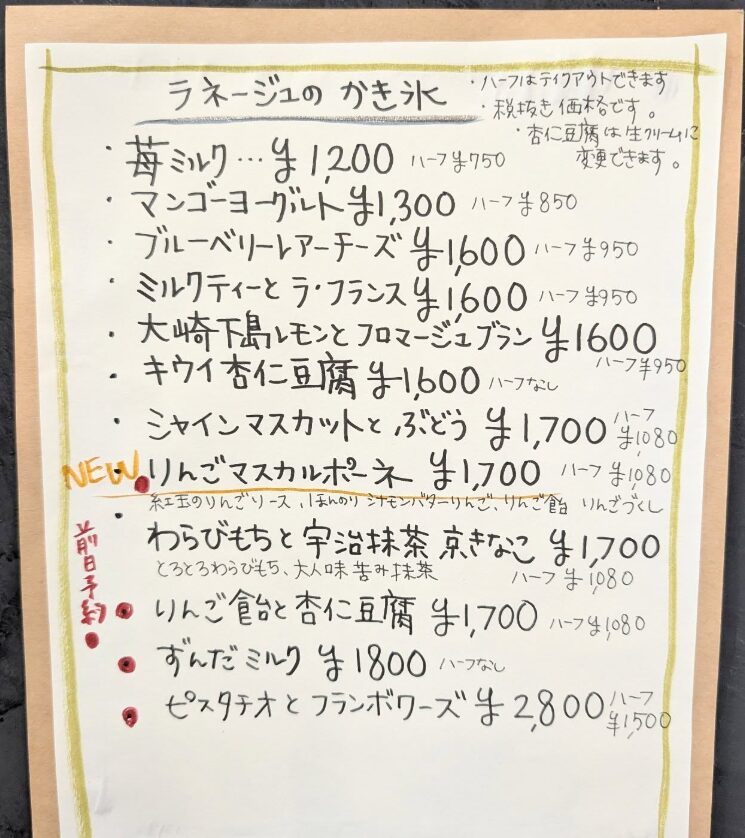 ラネージュの かき氷
・ハーフはテイクアウトできます
・税抜き価格です。
・杏仁豆腐は生クリームに
変更できます。
・苺ミルク…¥1,200 ハーフ¥750
・マンゴーヨーグルト¥1,300 ハーフ¥850
・ブルーベリーレアーチーズ¥1,600 ハーフ¥950
・ミルクティーと ラ・フランス¥1,600 ハーフ¥950
・大崎下島レモンと フロマージュブラン ¥1600
ハーフ¥950
・キウイ杏仁豆腐 ¥1,600 ハーフなし
・シャインマスカットと ぶどう ¥1,700 ハーフ
¥1,080
NEW・りんごマスカルポーネ ¥1,700 ハーフ ¥1,080
紅玉のりんごソース、ほんのりシナモンバターりんご、りんご飴 りんごづくし
・わらびもちと 宇治抹茶 京きなこ ¥1,700
とろとろわらびもち、大人味 苦み抹茶 ハーフ ¥1,080
前日予約
●りんご飴と杏仁豆腐 ¥1,700 ハーフ¥1,080
●ずんだミルク ¥1800 ハーフなし
●ピスタチオと フランボワーズ¥2,800 ハーフ
¥1,500